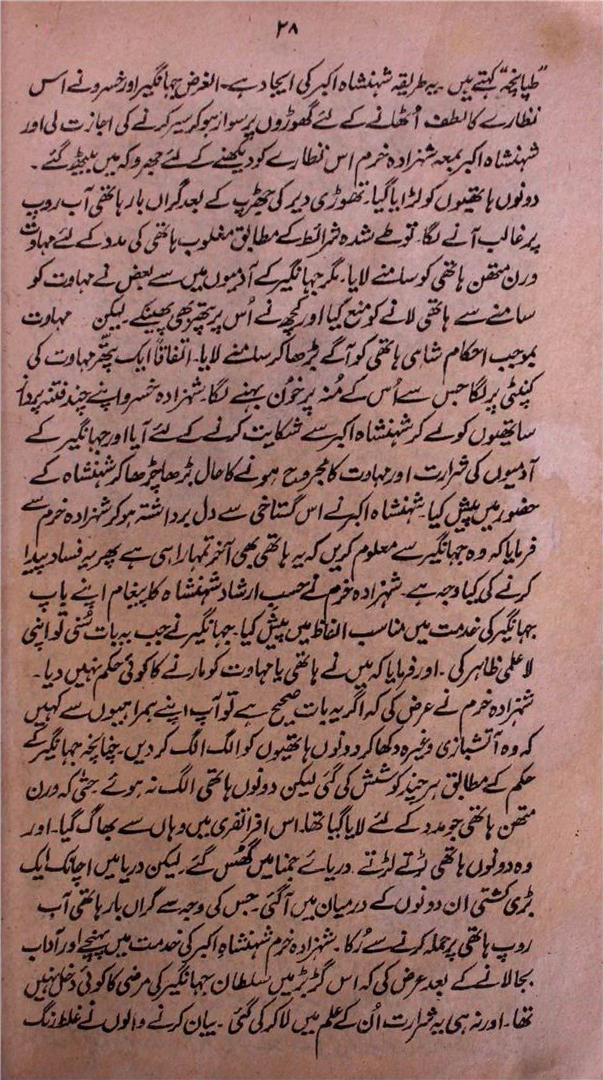 ۲۸
"طپانچہ" کہتے ہیں۔ یہ طریقہ شہنشاہ اکبر کی ایجاد ہے۔ الغرض جہانگیر اور خسرو نے اس
نظارے کا لطف اُٹھانے کے لئے گھوڑوں پر سوار ہو کر سیر کرنے کی اجازت لی اور
شہنشاہ اکبر بمعہ شہزادہ خرم اس نظارے کو دیکھنے کے لئے جھروکہ میں بیٹھ گئے۔
دونوں ہاتھیوں کو لڑایا گیا۔ تھوڑی دیر کی جھڑپ کے بعد گراں بار ہاتھی آب روپ
پر غالب آنے لگا۔ تو طے شدہ شرائط کے مطابق مغلوب ہاتھی کی مدد کے لئے مہاوت
ورن متھن ہاتھی کو سامنے لایا۔ مگر جہانگیر کے آدمیوں میں سے بعض نے مہاوت کو
سامنے سے ہاتھی لانے کو منع کیا اور کچھ نے اُس پر پتھر بھی پھینکے۔ لیکن مہاوت
بموجب احکام شاہی ہاتھی کو آگے بڑھا کر سامنے لایا۔ اتفاقاً ایک پتھر مہاوت کی
کنپٹی پر لگا جس سے اُس کے مُنہ پر خون بہنے لگا۔ شہزادہ خسرو اپنے چند فتنہ پرداز
ساتھیوں کو لے کر شہنشاہ اکبر سے شکایت کرنے کے لئے آیا اور جہانگیر کے
آدمیوں کی شرارت اور مہاوت کا مجروح ہونے کا حال بڑھا چڑھا کر شہنشاہ کے
حضور میں پیش کیا۔ شہنشاہ اکبر نے اس گستاخی سے دل برداشتہ ہو کر شہزادہ خرم سے
فرمایا کہ وہ جہانگیر سے معلوم کریں کہ یہ ہاتھی بھی آخر تمہارا ہی ہے پھر یہ فساد پیدا
کرنے کی کیا وجہ ہے۔ شہزادہ خرم نے حسب ارشاد شہنشاہ کا پیغام اپنے باپ
جہانگیر کی خدمت میں مناسب الفاظ میں پیش کیا۔ جہانگیر نے جب یہ بات سُنی تو اپنی
لا علمی ظاہر کی۔ اور فرمایا کہ میں نے ہاتھی یا مہاوت کو مارنے کا کوئی حکم نہیں دیا۔
شہزادہ خرم نے عرض کی کہ اگر یہ بات صحیح ہے تو آپ اپنے ہمراہیوں سے کہیں
کہ وہ آتشبازی وغیرہ دکھا کر دونوں ہاتھیوں کو الگ الگ کر دیں۔ چنانچہ جہانگیر کے
حکم کے مطابق ہر چند کوشش کی گئی لیکن دونوں ہاتھی الگ نہ ہوئے حتیٰ کہ ورن
متھن ہاتھی جو مدد کے لئے لایا گیا تھا۔ اس افراتفری میں وہاں سے بھاگ گیا۔ اور
وہ دونوں ہاتھی لڑتے لڑتے دریائے جمنا میں گھُس گئے۔ لیکن دریا میں اچانک ایک
بڑی کشتی ان دونوں کے درمیان میں آ گئی۔ جس کی وجہ سے گراں بار ہاتھی آب
روپ ہاتھی پر حملہ کرنے سے رُکا۔ شہزادہ خرم شہنشاہ اکبر کی خدمت میں پہنچے اور آداب
بجا لانے کے بعد عرض کی کہ اس گڑبڑ میں سلطان جہانگیر کی مرضی کا کوئی دخل نہیں
تھا۔ اور نہ ہی یہ شرارت اُن کے علم میں لا کر کی گئی۔ بیان کرنے والوں نے غلط رنگ